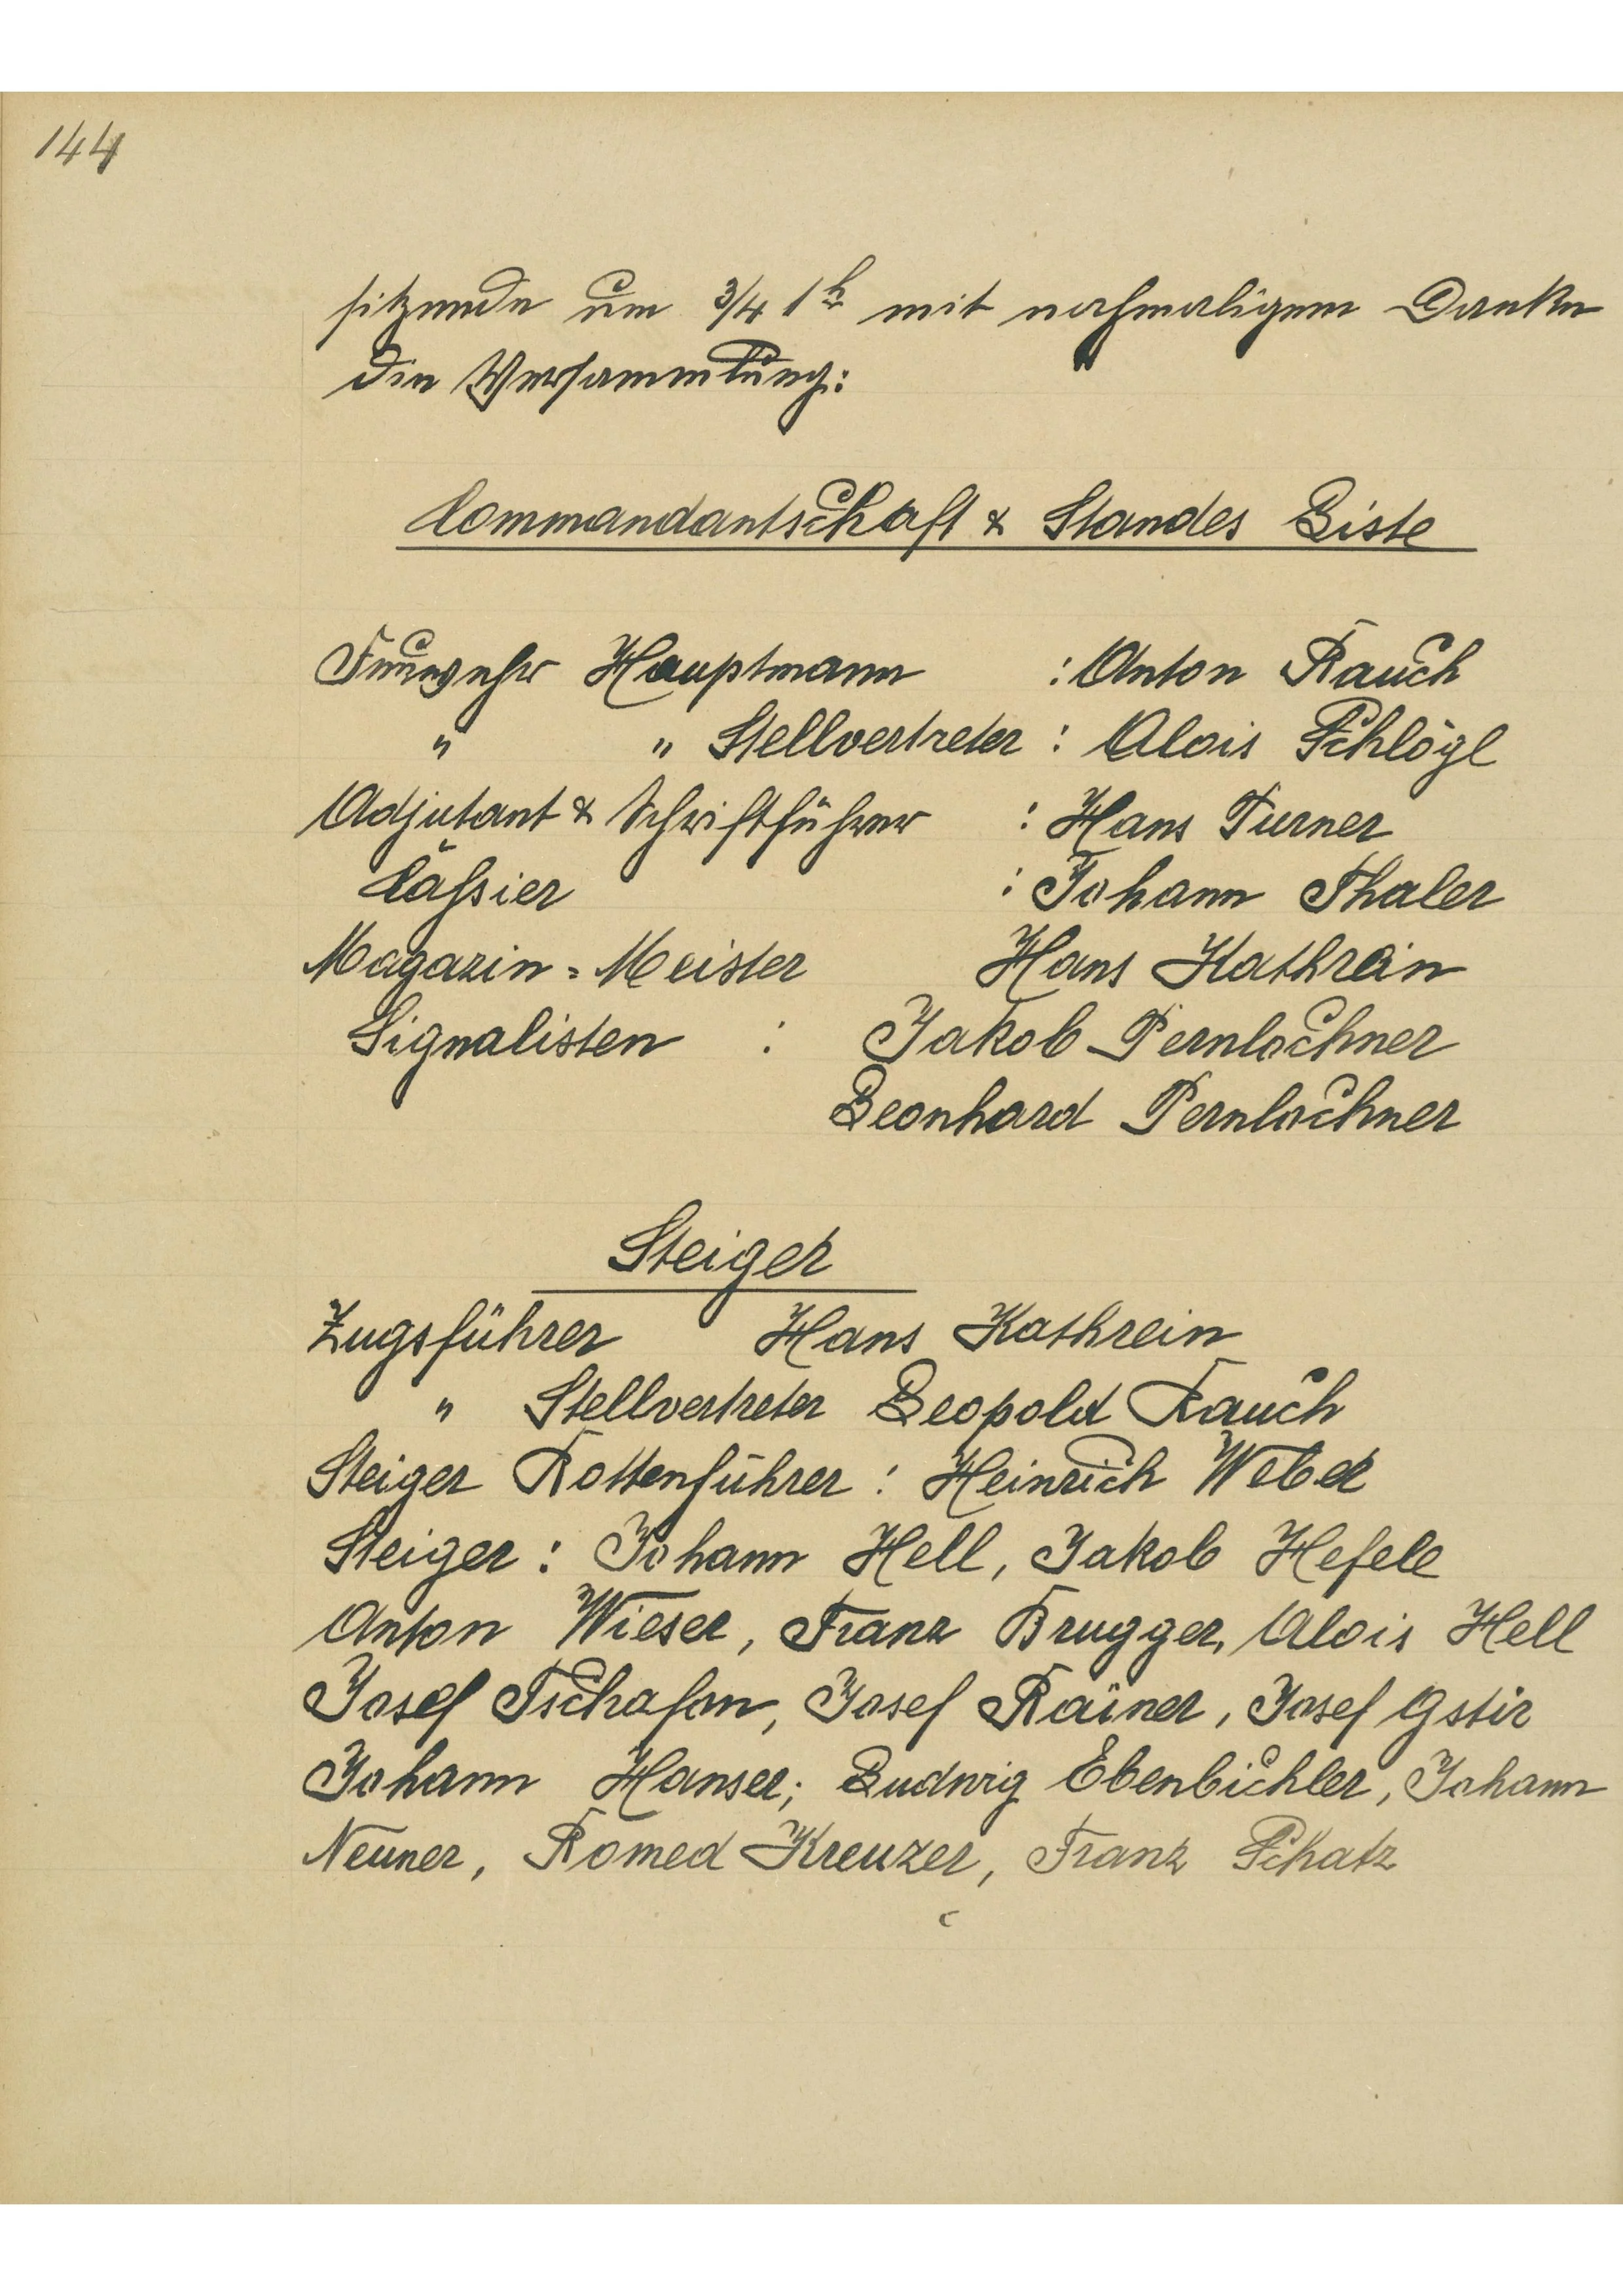 144
sitzende um 3/4 1h mit nochmaligem Danke
die Versammlung:
Commandantschaft & Standes Liste
Feuerwehr Hauptmann : Anton Rauch
" " Stellvertreter : Alois Schlögl
Adjutant & Schriftführer : Hans Turner
Cassier : Johann Thaler
Magazin = Meister Hans Kathrein
Signalisten : Jakob Pernlochner
Leonhard Pernlochner
Steiger
Zugsführer Hans Kathrein
" Stellvertreter Leopold Rauch
Steiger Rottenführer : Heinrich Weber
Steiger : Johann Hell, Jakob Hefele
Anton Wieser, Franz Brugger, Alois Hell
Josef Tschafon, Josef Rainer, Josef Gstir
Johann Hanser; Ludwig Ebenbichler, Johann
Neuner, Romed Kreuzer, Franz Schatz